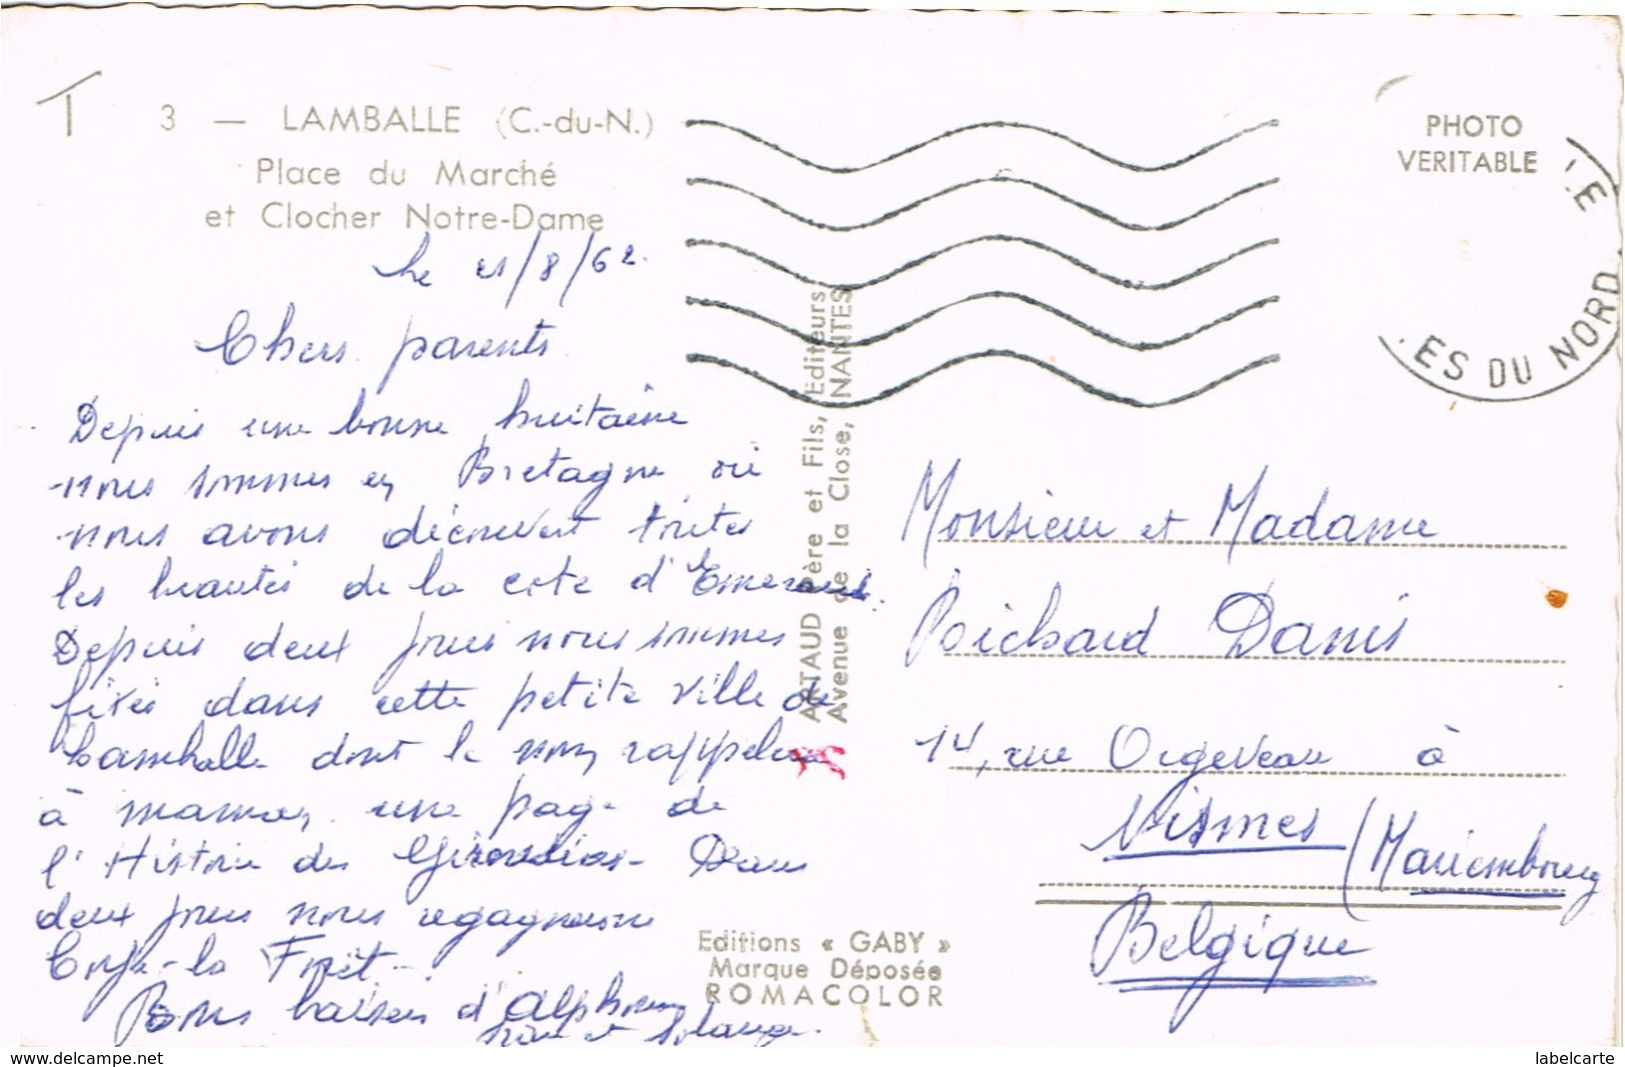 T
3 — LAMBALLE (C.-du-N.)
Place du Marché
et Clocher Notre-Dame
PHOTO
VERITABLE
.E
.ES DU NORD
le 21/8/62.
Chers parents
Depuis une bonne huitaine
nous sommes en Bretagne où
nous avons découvert toutes
les beautés de la cote d'Emeraude.
Depuis deux jours nous sommes
fixés dans cette petite ville de
Lamballe dont le nom rappelera
à maman une page de
l'Histoire des Girondins. Dans
deux jours nous regagnerons
la Forêt.
Bons baisers d'Alphonse
et Solange.
ARTAUD Père et Fils, Editeurs
Avenue de la Close, NANTES
Editions « GABY »
Marque Déposée
ROMACOLOR
Monsieur et Madame
Richard Danis
14, rue Orgeveau à
Nismes (Mariembourg
Belgique
www.delcampe.net
labelcarte